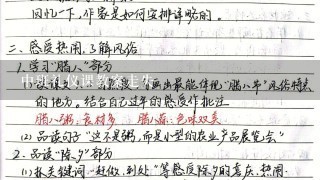 回忆一下,作家是如何安排详略的。
二、感受热闹,了解风俗
1. 学习"腊八"部分
画出最能体现"腊八节"风俗特点
的地方。结合自己过年的感受作批注
腊八粥:食材多 腊八蒜:色味双美
(2) 品读句子"这不是粥,而是小型的农业产品展览会"
2. 品读"除夕"部分
(1) 抓关键词"赶做、到处"等感受除夕的喜庆、热闹